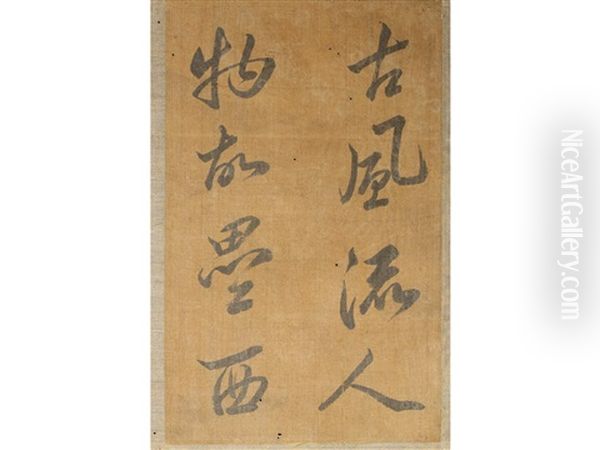 古風流人
物故壘西
NiceArtGallery.com